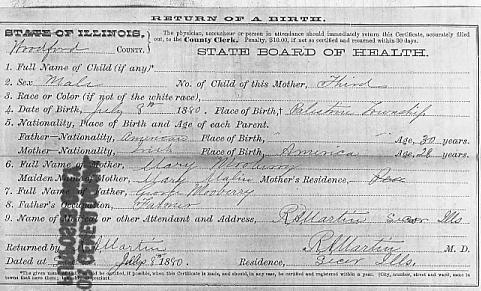 RETURN OF A BIRTH.
STATE OF ILLINOIS,
Woodford COUNTY.
The physician, accoucheur or person in attendance should immediately return this Certificate, accurately filled
out, to the County Clerk. Penalty, $10.00, if not so certified and returned within 30 days.
STATE BOARD OF HEALTH.
1. Full Name of Child (if any)
2. Sex, Male No. of Child of this Mother, Third
3. Race or Color (if not of the white race),
4. Date of Birth, July 8th 1880. Place of Birth,† Palestine Township
5. Nationality, Place of Birth and Age of each Parent.
Father-Nationality, American Place of Birth, Age, 30 years.
Mother-Nationality, Place of Birth, America Age, 28 years.
6. Full Name of Mother, Mary Mooberry
Maiden Name of Mother, Mary Mother's Residence,
7. Full Name of Father, Mooberry
8. Father's Occupation, Farmer
9. Name of Medical or other Attendant and Address, R Martin Secor Ills.
Returned by Martin R Martin M. D.
Dated at July 8th 1880. Residence, Secor Ills.